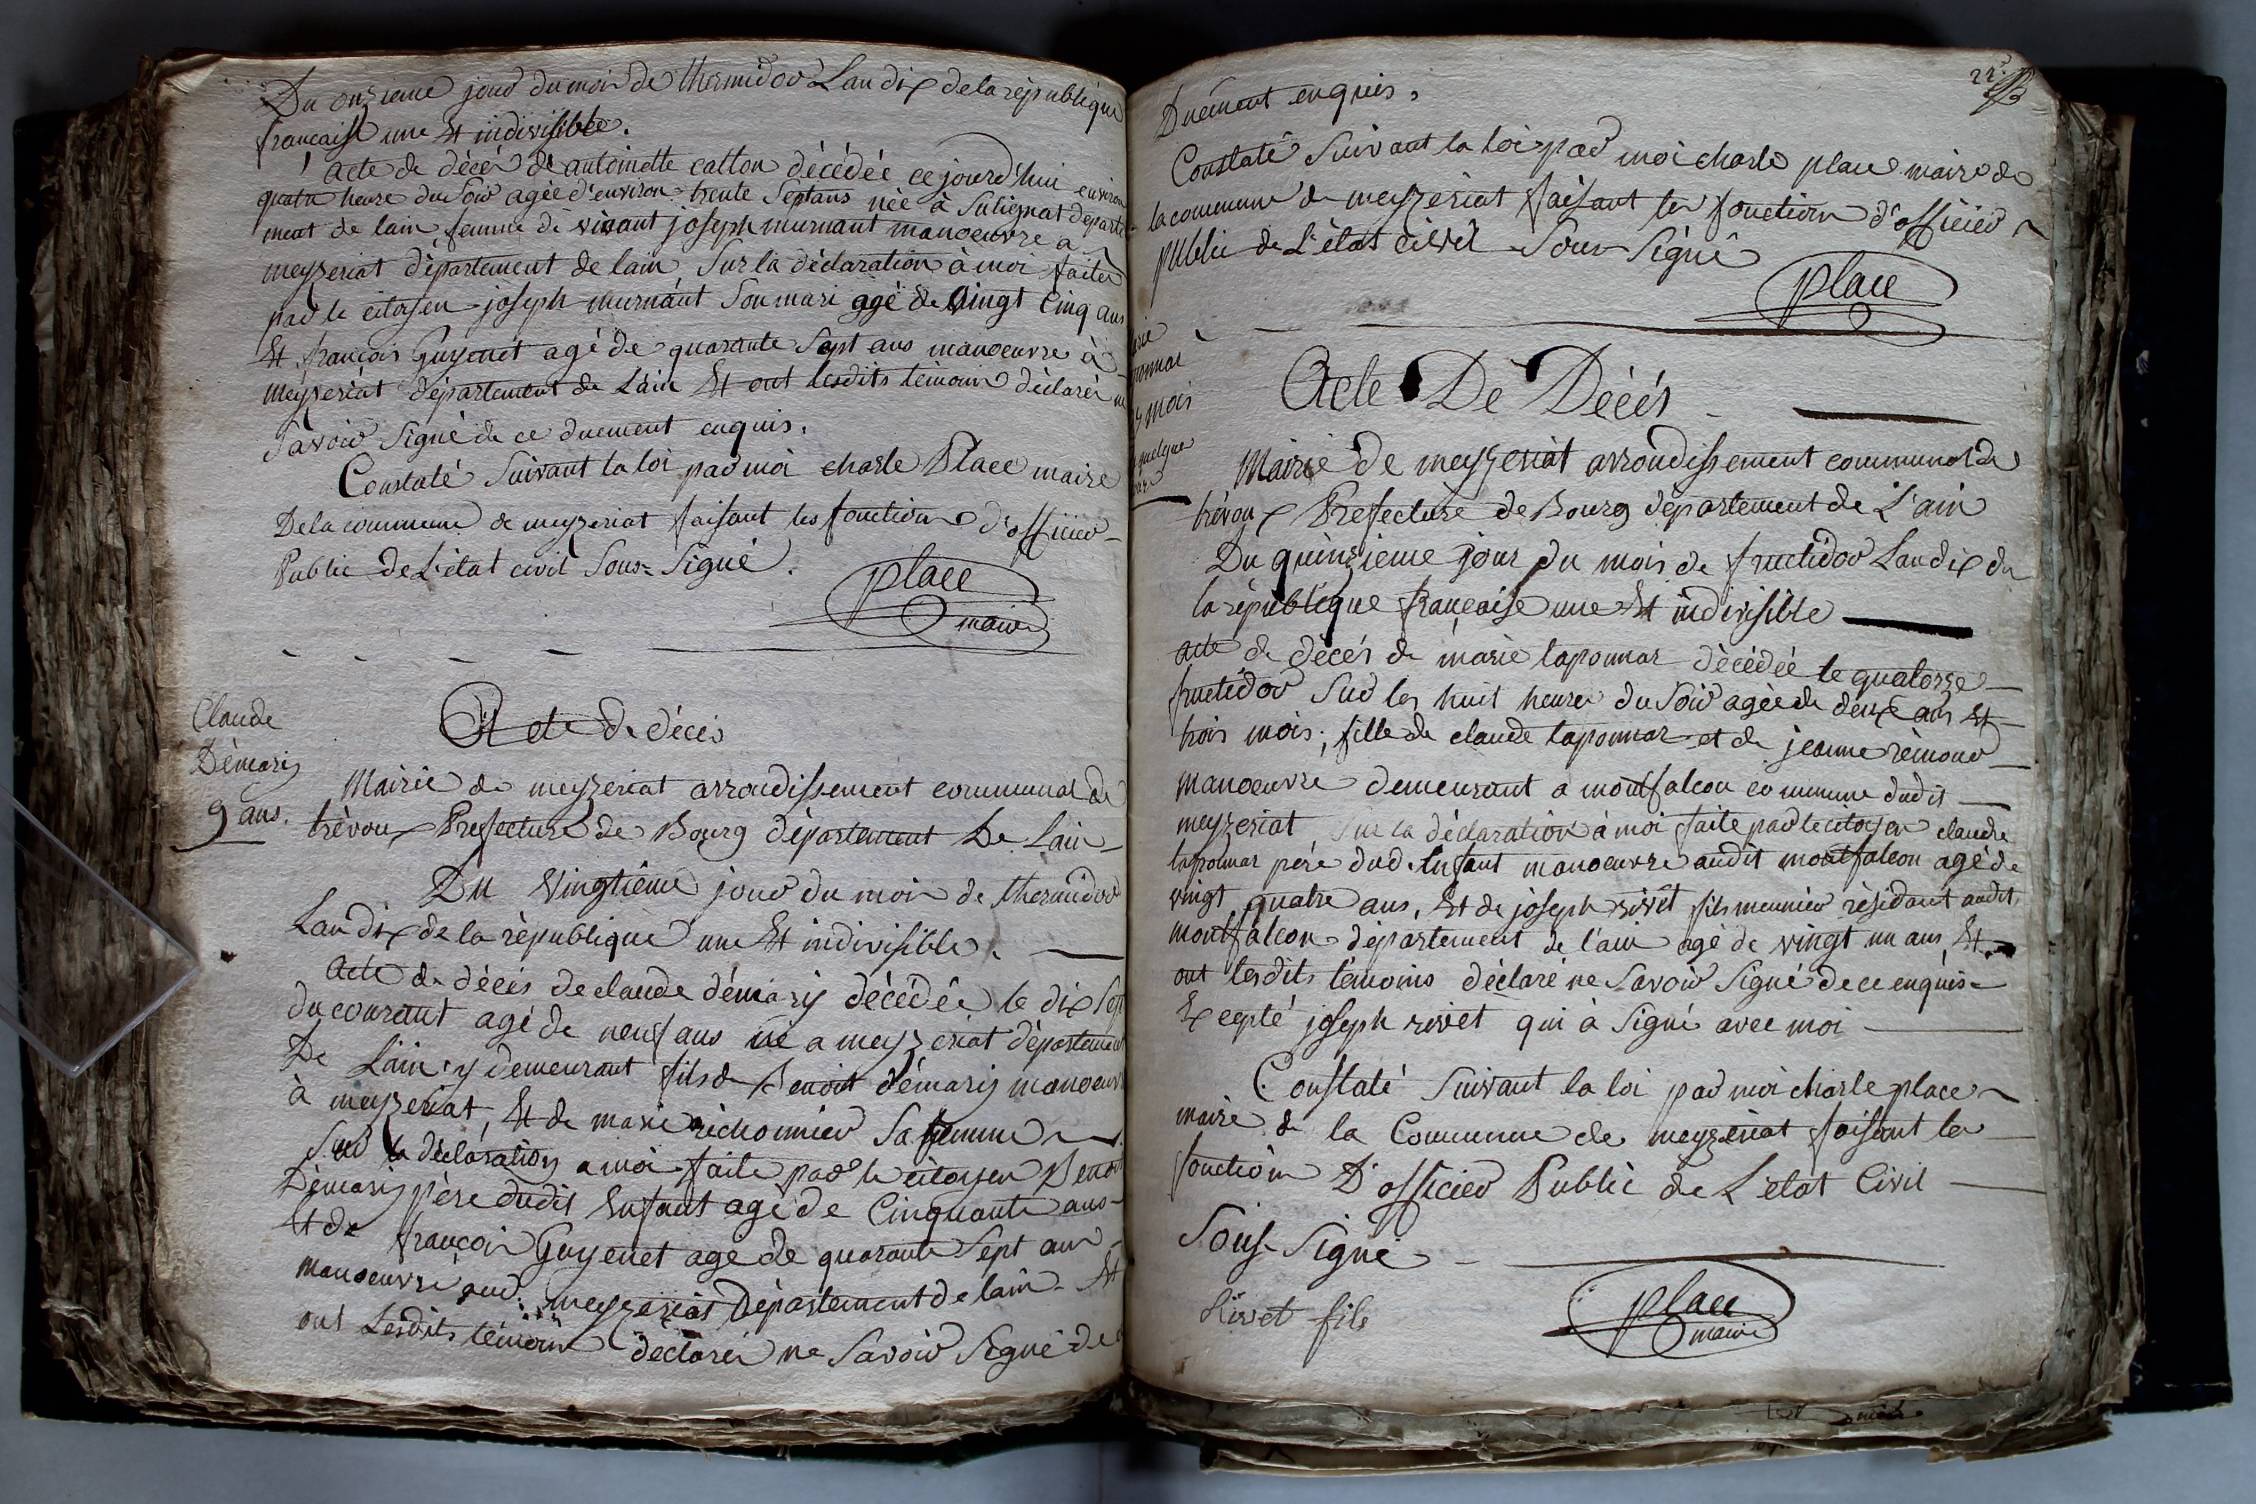 Du onzieme jour du mois de thermidor Lan dix de la république
francaise une Et indivisible.
acte de décès de antoinette catton décédée ce jourd'hui environ
quatre heure du soir agée d'environ trente Sept ans née à Sulignat departe
ment de lain femme de vivant joseph murnant manoeuvre a
meyzeriat département de lain, Sur la déclaration à moi faites
par le citoyen joseph murnant Son mari agé de Vingt Cinq ans
Et françois Guyenet agé de quarante Sept ans manoeuvre à
meyzeriat département de L'ain Et ont lesdits témoins déclarés ne
Savoir Signé de ce duement enquis.
Constaté Suivant la loi par moi charle Place maire
De la commune de meyzeriat faisant les fonction d'officier
Public de L'état civil Sous=Signé.
place
maire
Claude
Démaris
9 ans.
Acte de décès
Mairie de meyzeriat arrondissement communal de
trévoux Prefecture de Bourg département De Lain
Du Vingtième jour du mois de thermidor
Lan dix de la république une Et indivisible.
acte de décès de claude démaris décédée le dix Sept
du courant agé de neuf ans né a meyzeriat département
De L'ain y demeurant fils de Benoit démaris manoeuvre
à meyzeriat, Et de marie richonnier Sa femme
Sur la déclaration a moi faite par le citoyen Benoit
Démaris père dudit Enfant agé de Cinquante ans
Et de françois Guyenet age de quarante Sept ans
manoeuvre aud. meyzeriat Département de lain Et
ont Lesdits témoins déclarés ne Savoir Signé de ce
22
Duement enquis,
Constaté Suivant la loi par moi charle place maire de
la commune de meyzeriat faisant les fonction d'officier
public de L'état civil Sous Signé
place
mois
quelque
Acte De Décès
Mairie de meyzeriat arrondissement communal de
trévoux Prefecture de Bourg département de L'ain
Du quinzieme jour du mois de fructidor Lan dix de
la république française une Et indivisible
acte de décès de marie laponnar décédée le quatorze
fructidor Sur les huit heures du Soir agée de deux ans Et
trois mois, fille de claude laponnar et de jeanne rémond
manoeuvre demeurant a montfalcon commune dudit
meyzeriat Sur la déclaration à moi faite par le citoyen claude
laponnar père dud. Enfant manoeuvre audit montfalcon agé de
vingt quatre ans, Et de joseph rivet fils meunier résidant audit
montfalcon département de l'ain agé de vingt un ans Et
ont lesdits témoins déclaré ne Savoir Signé de ce enquis
Excepté joseph rivet qui à Signé avec moi
Constaté Suivant la loi par moi charle place
maire de la Commune de meyzeriat faisant les
fonction D'officier Public de L'état Civil
Sous-Signé
Rivet fils
place
maire